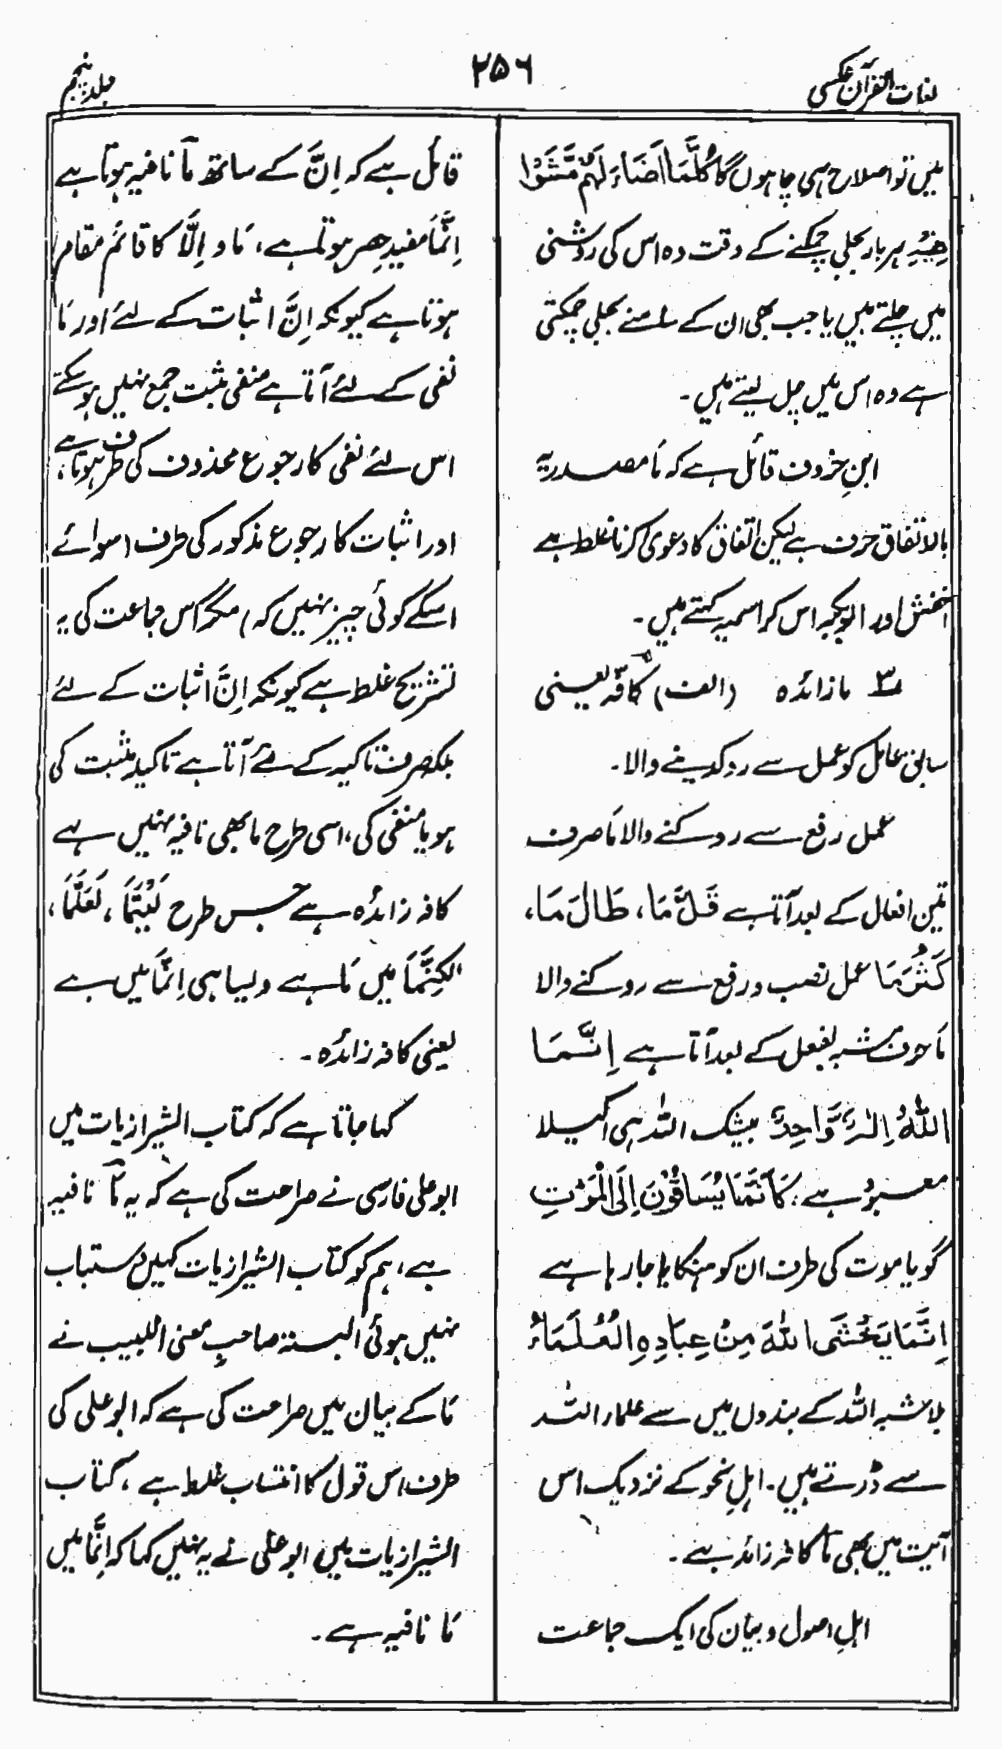 لغات القرآن عکسی
۲۵۶
جلد پنجم
میں تو اصلاح ہی چاہوں گا کُلَّمَا اَضَاءَ لَهُمْ مَّشَوْا
فِيْهِ ہر بار بجلی چمکنے کے وقت وہ اس کی روشنی
میں چلتے ہیں یا جب بھی ان کے سامنے بجلی چمکتی
ہے وہ اس میں چل لیتے ہیں۔
ابنِ خروف قائل ہے کہ مَا مصدریہ
بالاتفاق حرف ہے لیکن اتفاق کا دعوی کرنا غلط ہے
اخفش اور ابوبکر اس کو اسمیہ کہتے ہیں۔
۳ ما زائدہ (الف) کافّہ یعنی
سابق عامل کو عمل سے روکدینے والا۔
عمل رفع سے روکنے والا مَا صرف
تین افعال کے بعد آتا ہے قَلَّ مَا، طَالَ مَا،
كَثُرَ مَا عمل نصب و رفع سے روکنے والا
مَا حرف مشبہ بفعل کے بعد آتا ہے اِنَّمَا
اللّٰهُ اِلٰهٌ وَّاحِدٌ بیشک اللہ ہی اکیلا
معبود ہے، كَاَنَّمَا يُسَاقُوْنَ اِلَى الْمَوْتِ
گویا موت کی طرف ان کو ہنکایا جا رہا ہے
اِنَّمَا يَخْشَى اللّٰهَ مِنْ عِبَادِهِ الْعُلَمَاءُ
بلاشبہ اللہ کے بندوں میں سے علماء اللہ
سے ڈرتے ہیں۔ اہلِ نحو کے نزدیک اس
آیت میں بھی مَا کافہ زائد ہے۔
اہلِ اصول و بیان کی ایک جماعت
قائل ہے کہ اِنَّ کے ساتھ مَا نافیہ ہوتا ہے
اِنَّمَا مفید حصر ہوتا ہے، مَا و اِلَّا کا قائم مقام
ہوتا ہے کیونکہ اِنَّ اثبات کے لئے اور مَا
نفی کے لئے آتا ہے منفی مثبت جمع نہیں ہو سکتے
اس لئے نفی کا رجوع محذوف کی طرف ہوتا ہے،
اور اثبات کا رجوع مذکور کی طرف (سوائے
اسکے کوئی چیز نہیں کہ) مگر اس جماعت کی یہ
تشریح غلط ہے کیونکہ اِنَّ اثبات کے لئے
بلکہ صرف تاکید کے لئے آتا ہے تاکید مثبت کی
ہو یا منفی کی، اسی طرح ما بھی نافیہ نہیں ہے
کافہ زائدہ ہے جس طرح لَيْتَمَا، لَعَلَّمَا،
لٰكِنَّمَا میں مَا ہے ویسا ہی اِنَّمَا میں ہے
یعنی کافہ زائدہ۔
کہا جاتا ہے کہ کتاب الشیرازیات میں
ابو علی فارسی نے صراحت کی ہے کہ یہ مَا نافیہ
ہے، ہم کو کتاب الشیرازیات کہیں دستیاب
نہیں ہوئی البتہ صاحبِ مغنی اللبیب نے
مَا کے بیان میں صراحت کی ہے کہ ابو علی کی
طرف اس قول کا انتساب غلط ہے، کتاب
الشیرازیات میں ابو علی نے یہ نہیں کہا کہ اِنَّمَا میں
مَا نافیہ ہے۔